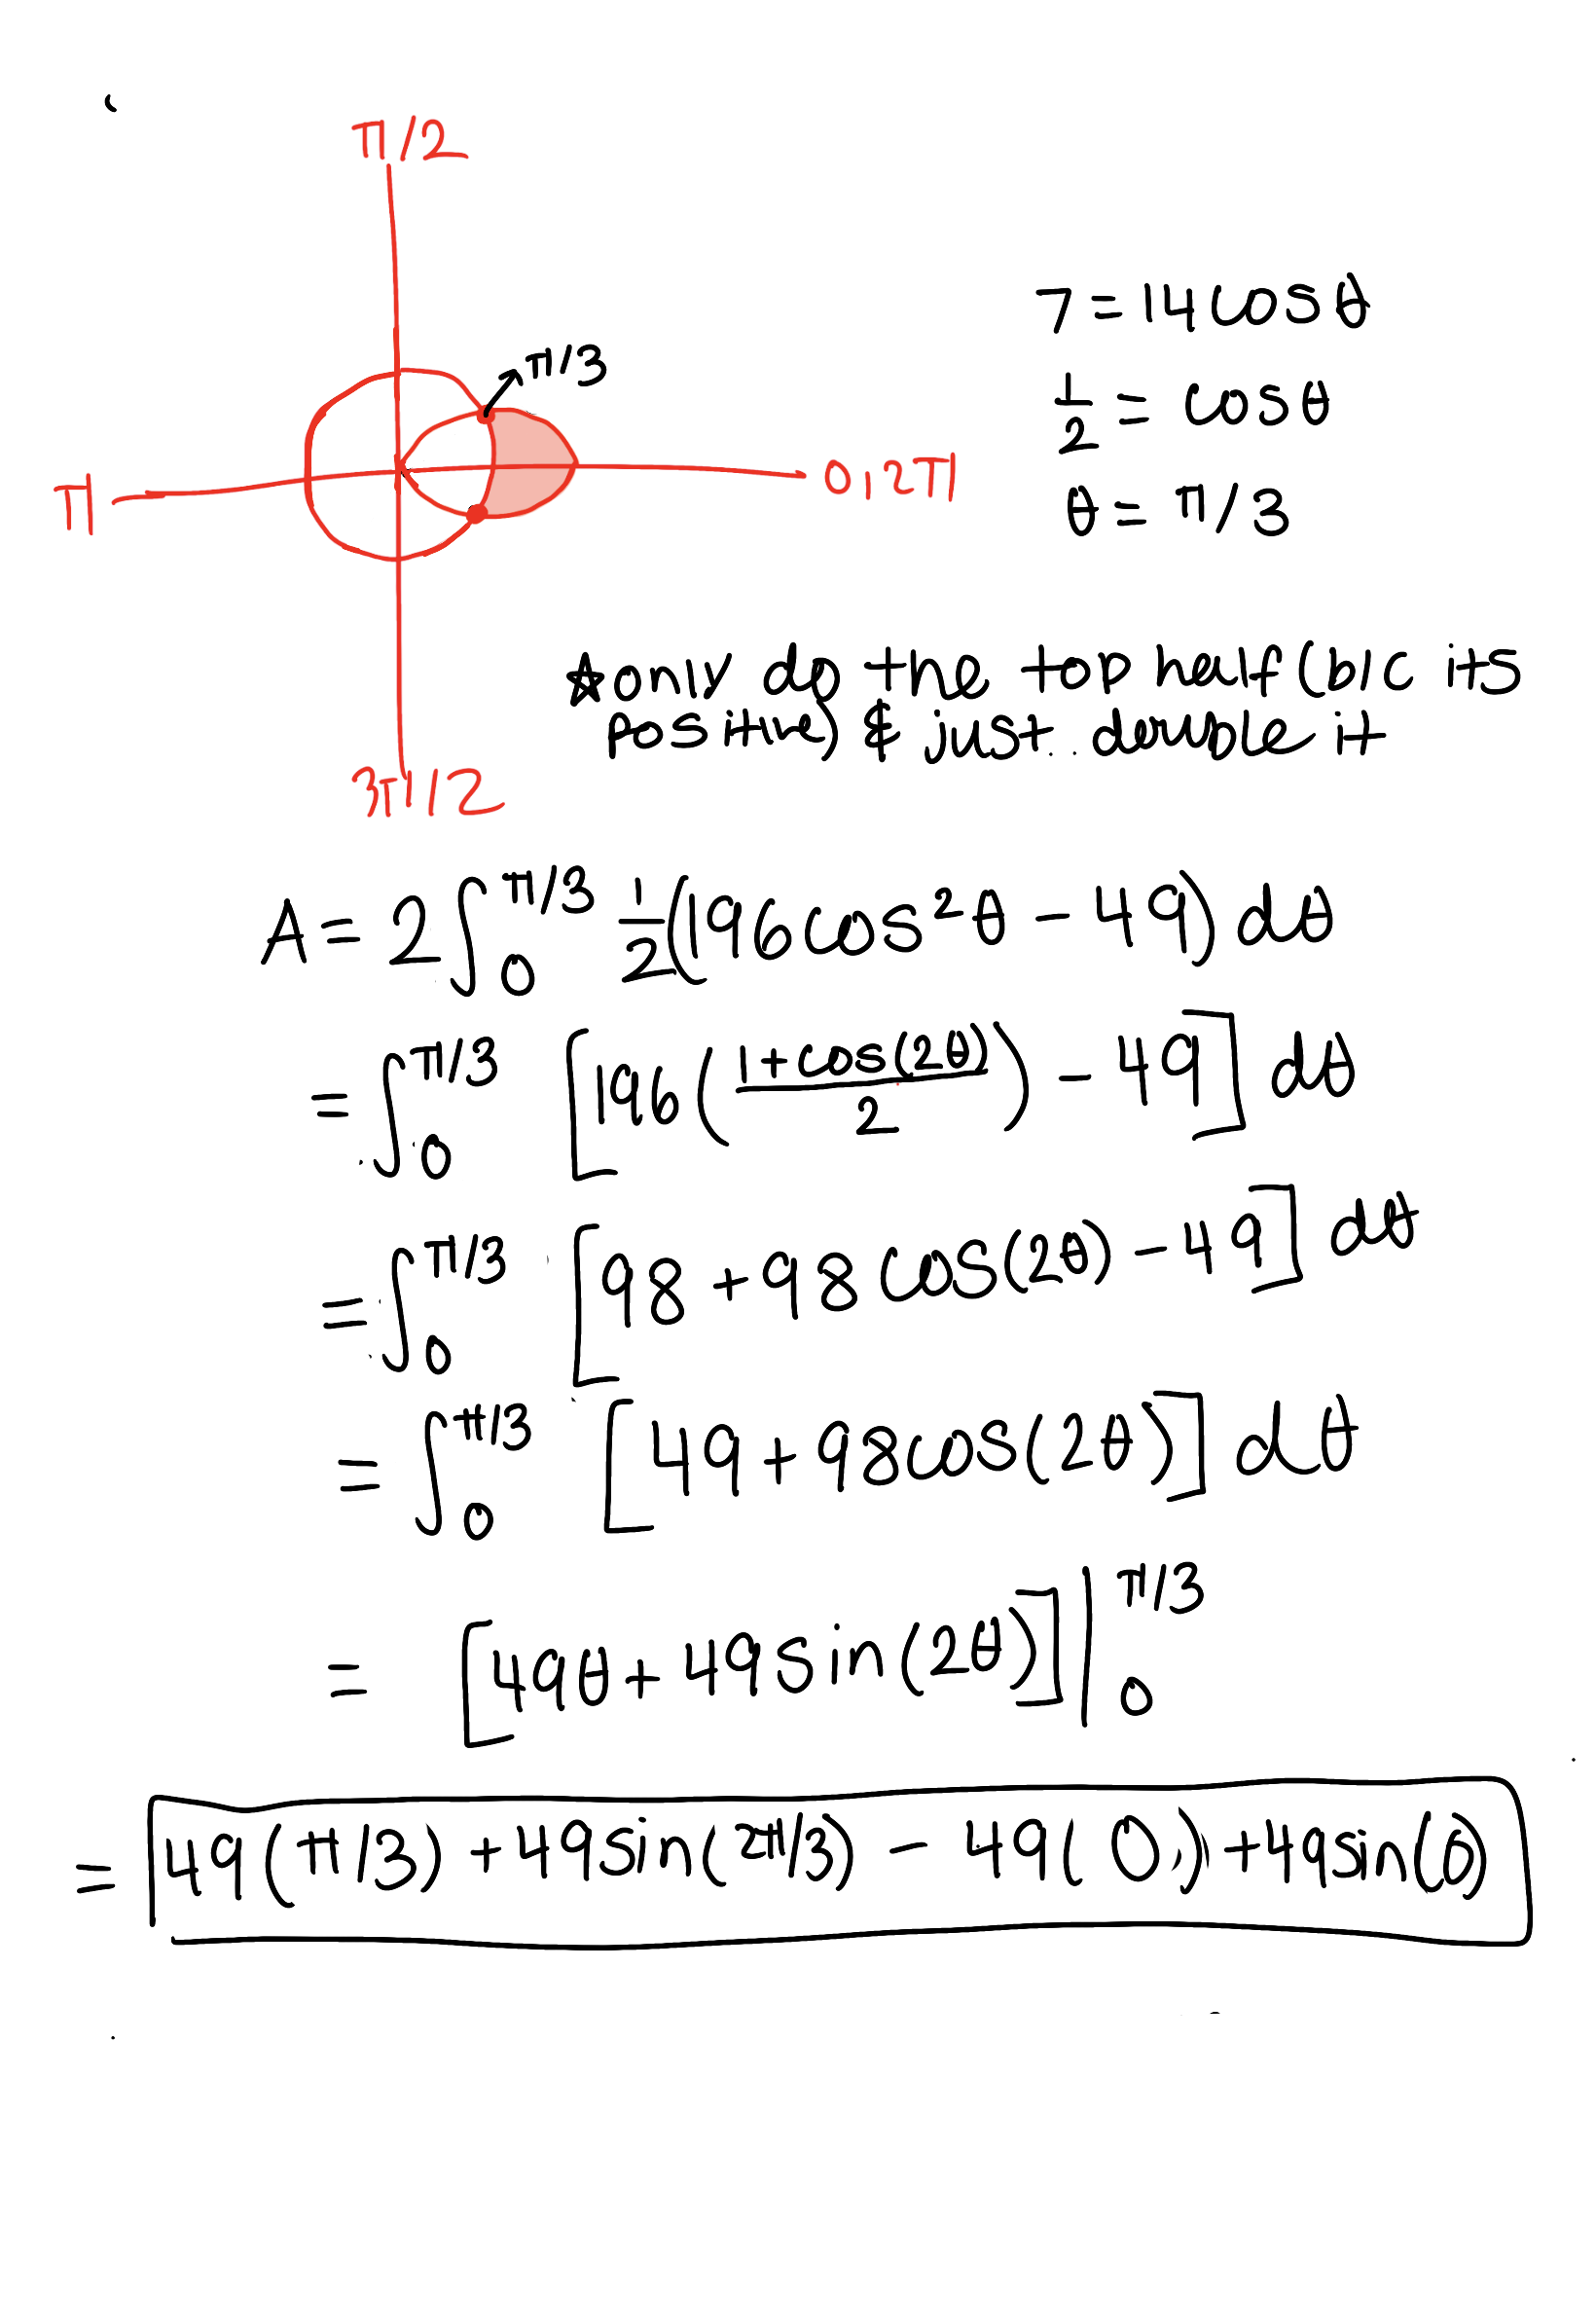 π/2
π/3
π
0,2π
3π/2
7 = 14 cosθ
1/2 = cosθ
θ = π/3
☆ only do the top half (b/c its
positive) & just double it
A = 2∫₀^π/3 1/2(196cos²θ − 49) dθ
= ∫₀^π/3 [196((1+cos(2θ))/2) − 49] dθ
= ∫₀^π/3 [98 + 98 cos(2θ) − 49] dθ
= ∫₀^π/3 [49 + 98cos(2θ)] dθ
= [49θ + 49 sin(2θ)] |₀^π/3
= 49(π/3) + 49 sin(2π/3) − 49(0) + 49sin(0)